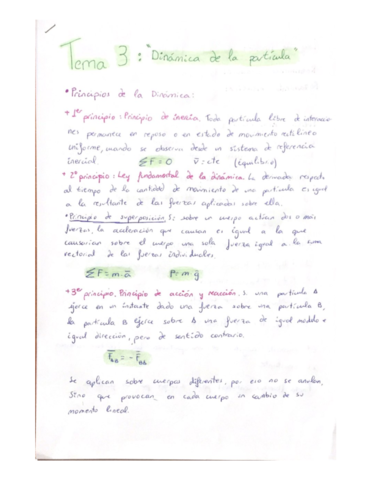 Tema 3: "Dinámica de la partícula"
• Principios de la Dinámica:
• 1er principio: Principio de Inercia. Toda partícula libre de interaccio
nes permanece en reposo o en estado de movimiento rectilíneo
uniforme, cuando se observa desde un sistema de referencia
inercial. ΣF = 0 v̄ = cte (equilibrio)
• 2º principio: Ley fundamental de la dinámica. La derivada respecto
al tiempo de la cantidad de movimiento de una partícula es igual
a la resultante de las fuerzas aplicadas sobre ella.
• Principio de superposición: Si sobre un cuerpo actúan dos o más
fuerzas, la aceleración que causan es igual a la que
causarían sobre el cuerpo una sola fuerza igual a la suma
vectorial de las fuerzas individuales.
ΣF = m·a P = m·g
• 3er principio. Principio de acción y reacción. Si una partícula A
ejerce en un instante dado una fuerza sobre una partícula B,
la partícula B ejerce sobre A una fuerza de igual módulo e
igual dirección, pero de sentido contrario.
F̄BA = - F̄AB
Se aplican sobre cuerpos diferentes, por eso no se anulan,
Sino que provocan, en cada cuerpo un cambio de su
momento lineal.